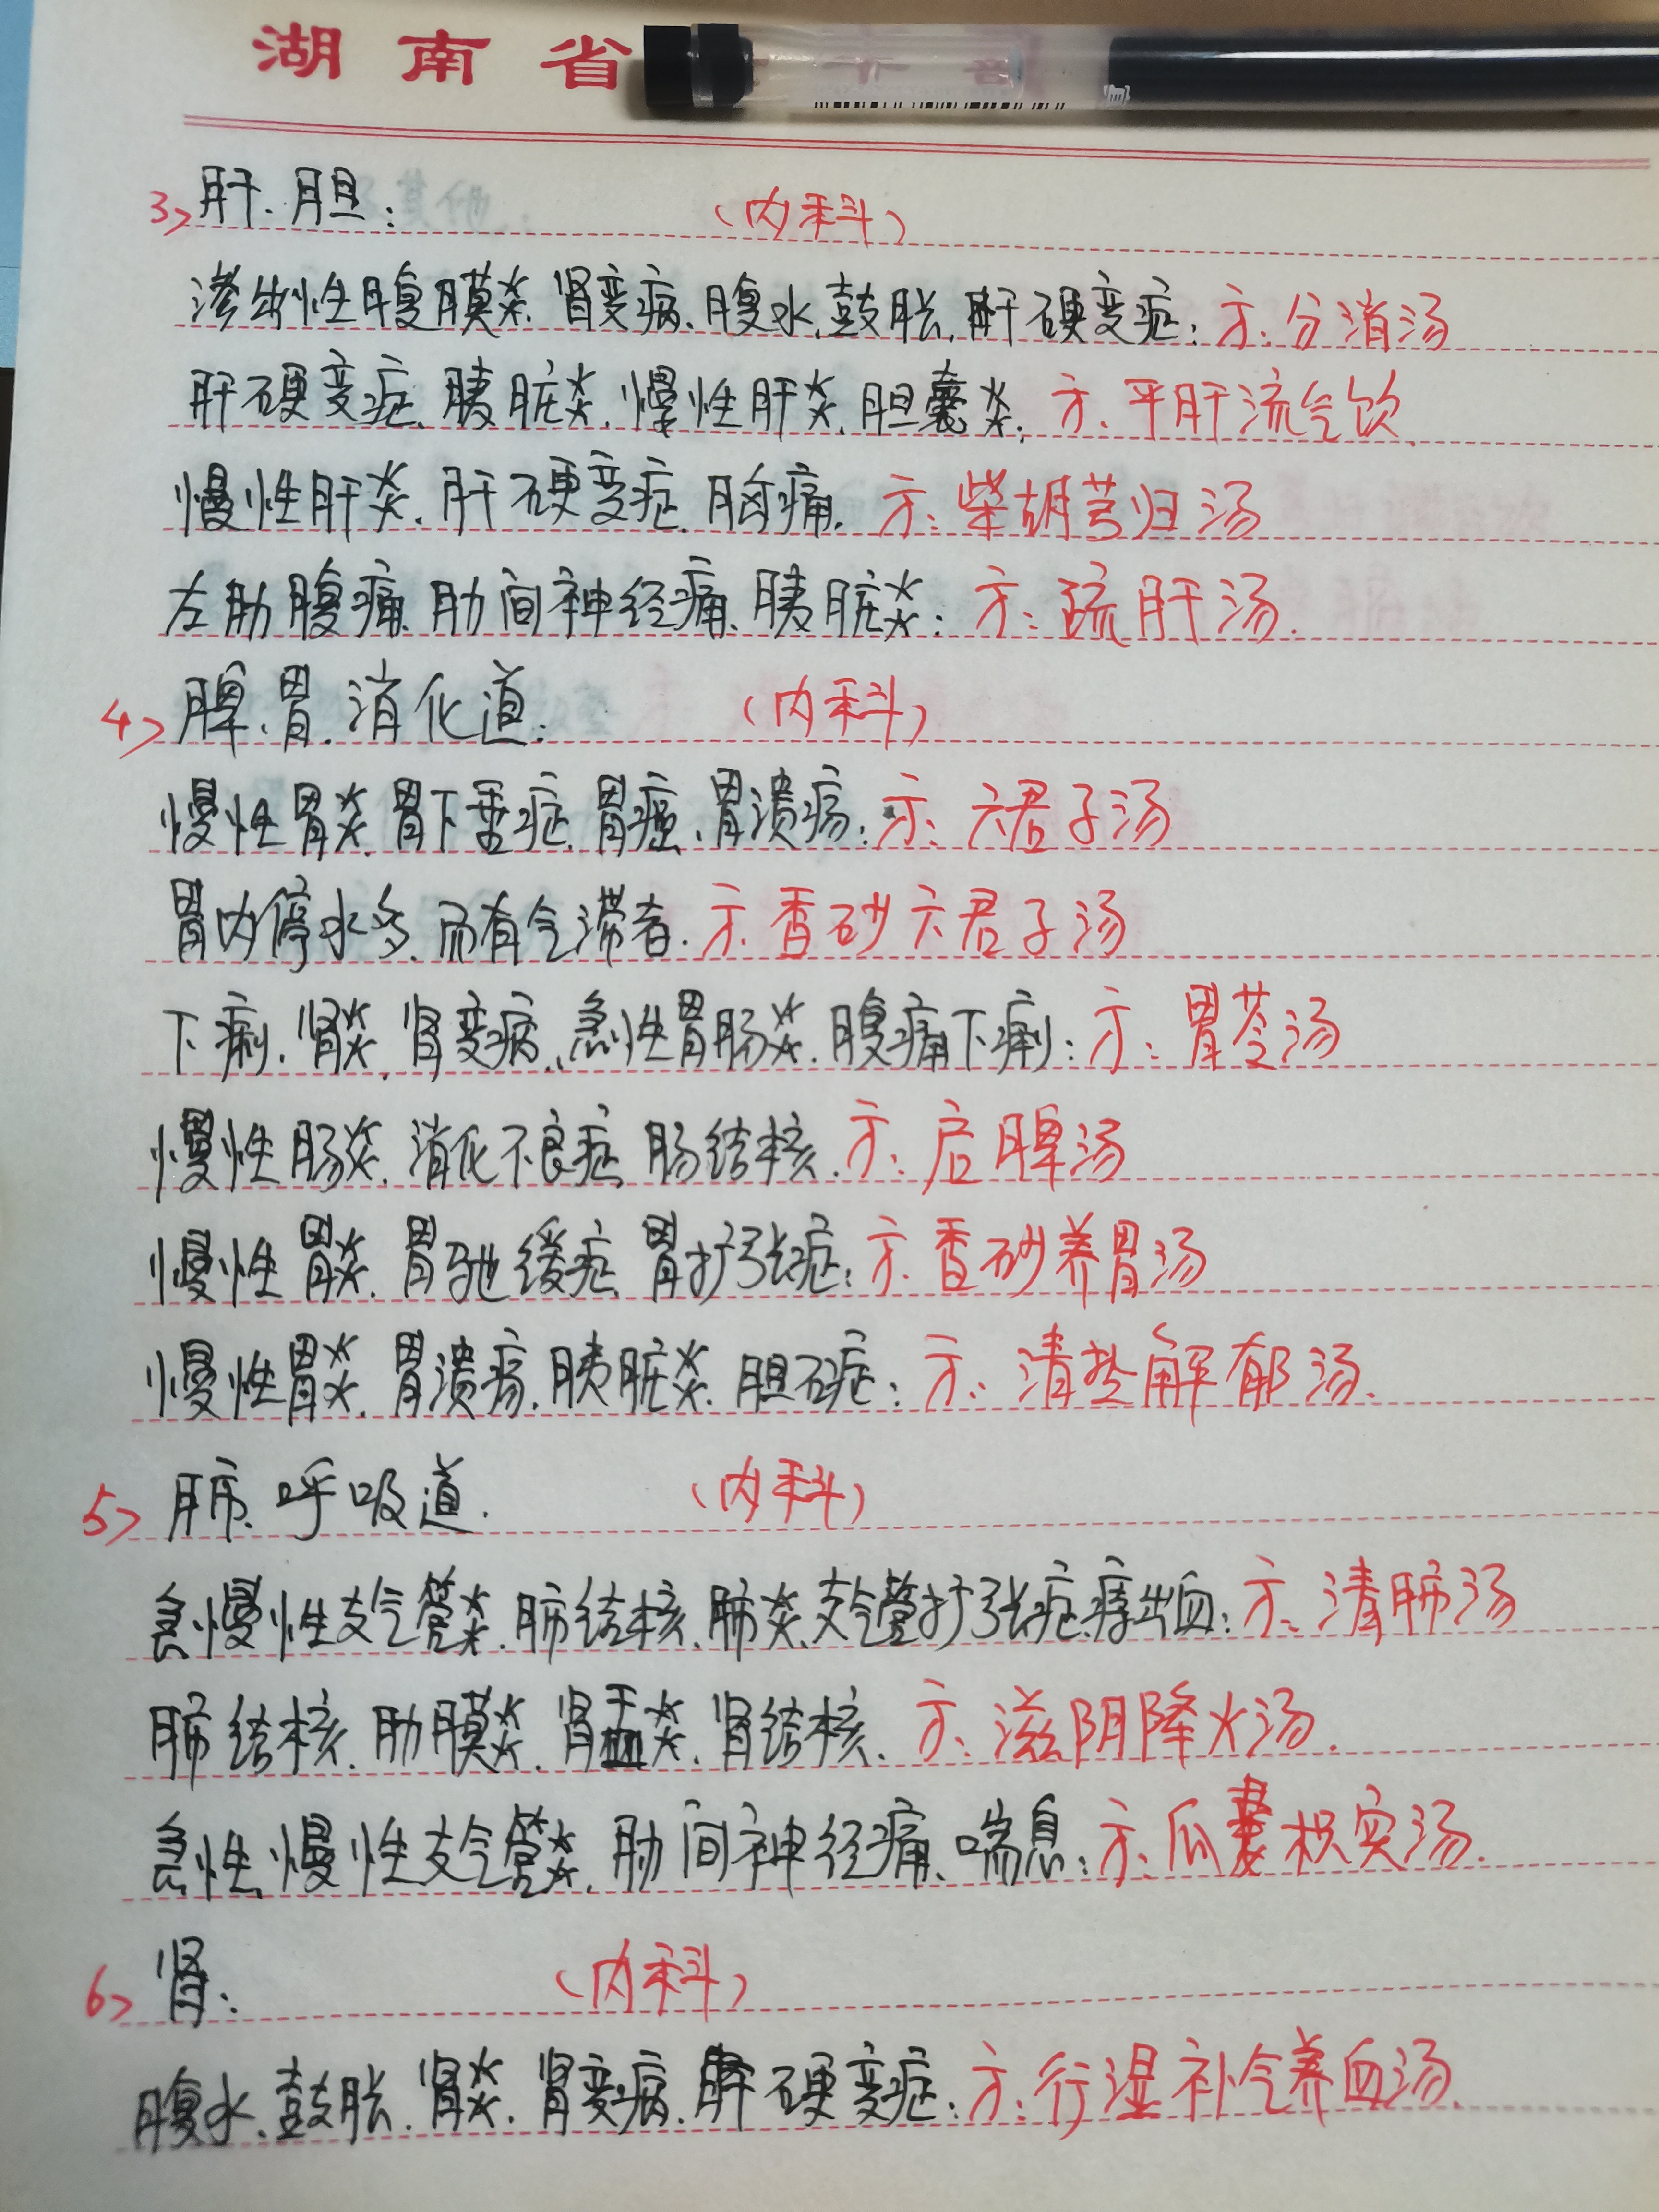 湖南省
3> 肝、胆： （内科）
渗出性腹膜炎、肾变病、腹水、鼓胀、肝硬变症：方：分消汤
肝硬变症、胰脏炎、慢性肝炎、胆囊炎：方、平肝流气饮、
慢性肝炎、肝硬变症、胸痛、方：柴胡芎归汤
左肋腹痛、肋间神经痛、胰脏炎：方：疏肝汤.
4> 脾、胃、消化道： （内科）
慢性胃炎、胃下垂症、胃癌、胃溃疡：方：六君子汤
胃内停水多、而有气滞者、方、香砂六君子汤
下痢、肾炎、肾变病、急性胃肠炎、腹痛下痢：方：胃苓汤
慢性肠炎、消化不良症、肠结核、方：启脾汤
慢性胃炎、胃驰缓症、胃扩张症：方、香砂养胃汤
慢性胃炎、胃溃疡、胰脏炎、胆石症：方：清热解郁汤.
5> 肺、呼吸道. （内科）
急慢性支气管炎、肺结核、肺炎、支气管扩张症、痔出血：方、清肺汤
肺结核、肋膜炎、肾盂炎、肾结核、方、滋阴降火汤.
急性、慢性支气管炎、肋间神经痛、喘息：方、瓜蒌枳实汤.
6> 肾： （内科）
腹水、鼓胀、肾炎、肾变病、肝硬变症：方：行湿补气养血汤.